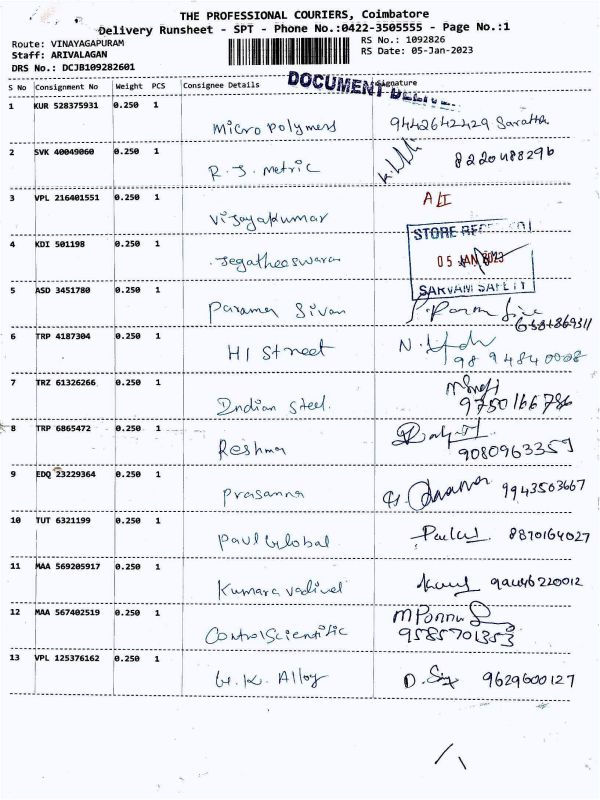 THE PROFESSIONAL COURIERS, Coimbatore
Delivery Runsheet - SPT - Phone No.:0422-3505555 - Page No.:1
Route: VINAYAGAPURAM
RS No.: 1092826
Staff: ARIVALAGAN
RS Date: 05-Jan-2023
DRS No.: DCJB109282601
DOCUMENT
S No Consignment No Weight PCS Consignee Details Signature
1 KUR 528375931 0.250 1
Micro Polymers 9442642429 Saratha
2 SVK 40049060 0.250 1
R.J. Metric 8220488296
3 VPL 216401551 0.250 1
Vijayakumar ALI
4 KDI 501198 0.250 1
STORE
Jegatheeswaran 05 JAN 2023
5 ASD 3451780 0.250 1
SARVAM SAFETY
Parama Sivan
6 TRP 4187304 0.250 1
HI Street 98 94840008
7 TRZ 61326266 0.250 1
Indian Steel. 9750166786
8 TRP 6865472 0.250 1
Reshma 9080963359
9 EDQ 23229364 0.250 1
Prasanna 9943503667
10 TUT 6321199 0.250 1
Paul Global 8870164027
11 MAA 569205917 0.250 1
Kumara vadivel
12 MAA 567402519 0.250 1
M Ponnu
Control Scientific 9585701353
13 VPL 125376162 0.250 1
G.K. Alloy 9629600127